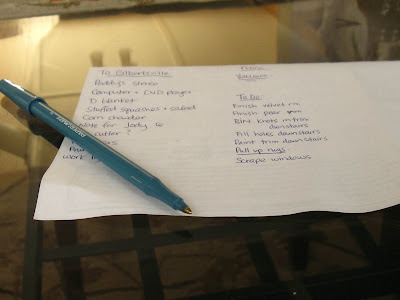 To Gilbertsville
Paddy's stereo
Computer + DVD player
D. blanket
Stuffed squashes + salad
Corn chowder
Note for Jody re
cutler?
Work
Vacuum
To Do
Finish velvet rm
Finish pear rm
BIN knots in trim
downstairs
Fill holes downstairs
Paint trim downstairs
Pull up rugs
Scrape windows